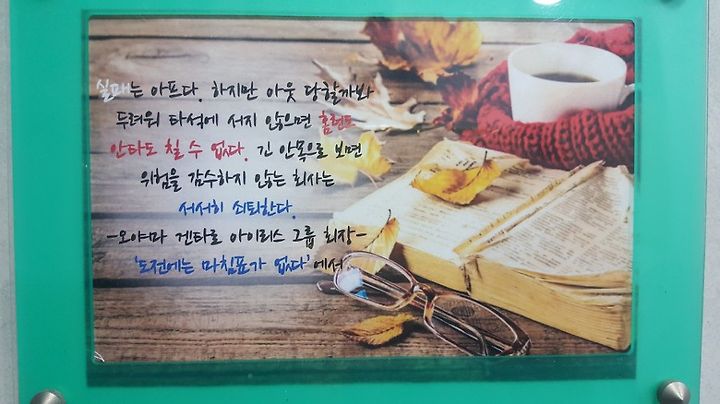 실패는 아프다. 하지만 아웃 당할까봐
두려워 타석에 서지 않으면 홈런도
안타도 칠 수 없다. 긴 안목으로 보면
위험을 감수하지 않는 회사는
서서히 쇠퇴한다.
-오야마 겐타로 아이리스 그룹 회장-
'도전에는 마침표가 없다'에서